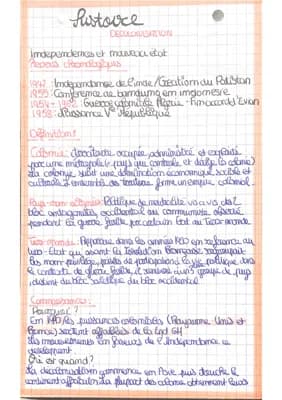 Histoire
DECOLONISATION
Indépendances et nouveaux etat
Repères chronologiques
1947 : Indépendance de l'Inde / Création du Pakistan
1955 : Conférence de bandung en indonesie
1954 - 1962 : Guerre Algérie - Fin accord d'Evian
1958 : Naissance Ve République
Définitions
Colonie : territoire occupée, administré et exploité
par une métropole (pays qui contrôle et dirige la colonie)
La colonie subit une domination économique, sociale et
culturelle. L'ensemble des territoires forme un empire colonial.
Pays non alignés : Politique de neutralité vis à vis des 2
bloc antagonistes occidental ou communiste
pendant la guerre froide par certain Etat du Tiers-monde
Tiers-monde : dans les années en référence au
tiers-Etat qui avant la Révolution française regroupait
les non privilégiés, privés de participation à la vie politique dans
le contexte de guerre froide, il désigne un groupe de pays
distinct du bloc soviétique du bloc occidental
Connaissances :
Pourquoi ?
En 1945 les puissances colonisatrices (Royaume-Unis et
France) sortent affaiblies de la 2nd GM
les mouvements en faveurs de l'indépendance se
developpent.
Où et quand ?
La décolonisation commence en Asie puis touche le
continent africain. La plupart des colonies obtiennent leurs